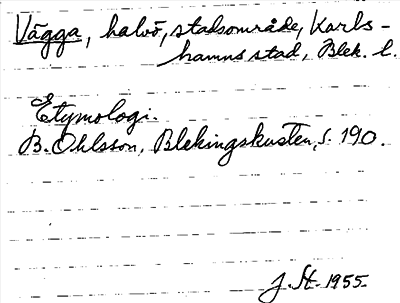 Vägga, halvö, stadsområde, Karls-
hamns stad, Blek. l.
Etymologi.
B. Ohlsson, Blekingskusten, s. 190.
J. St. 1955.